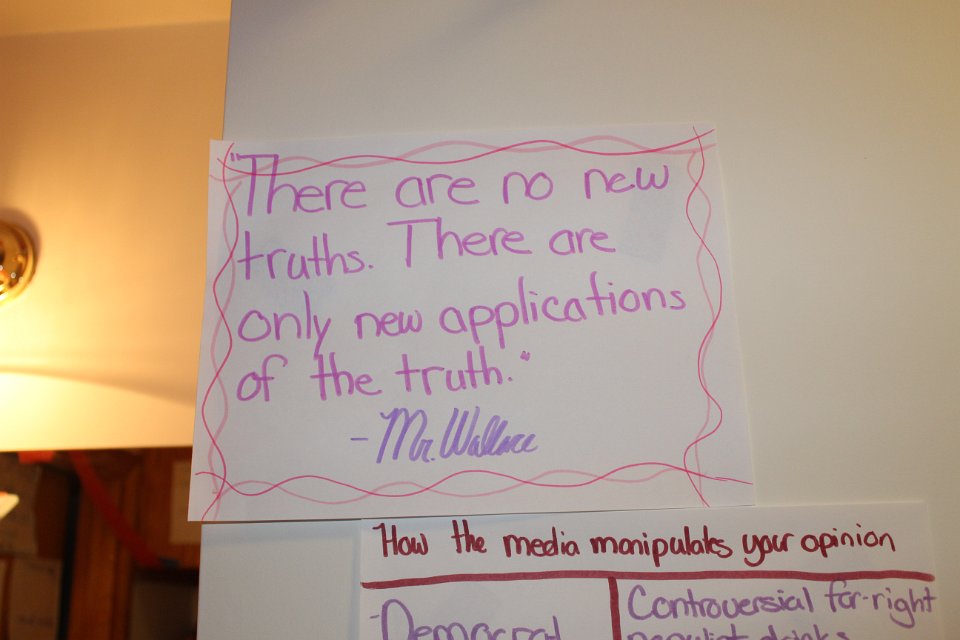 "There are no new
truths. There are
only new applications
of the truth."
- Mr. Wallace
How the media manipulates your opinion
- Democrat
Controversial far-right
populist drinks